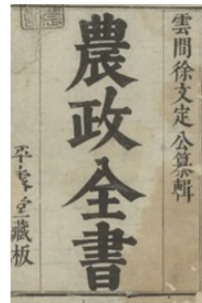 雲間徐文定公纂輯
農政全書
平露堂藏板